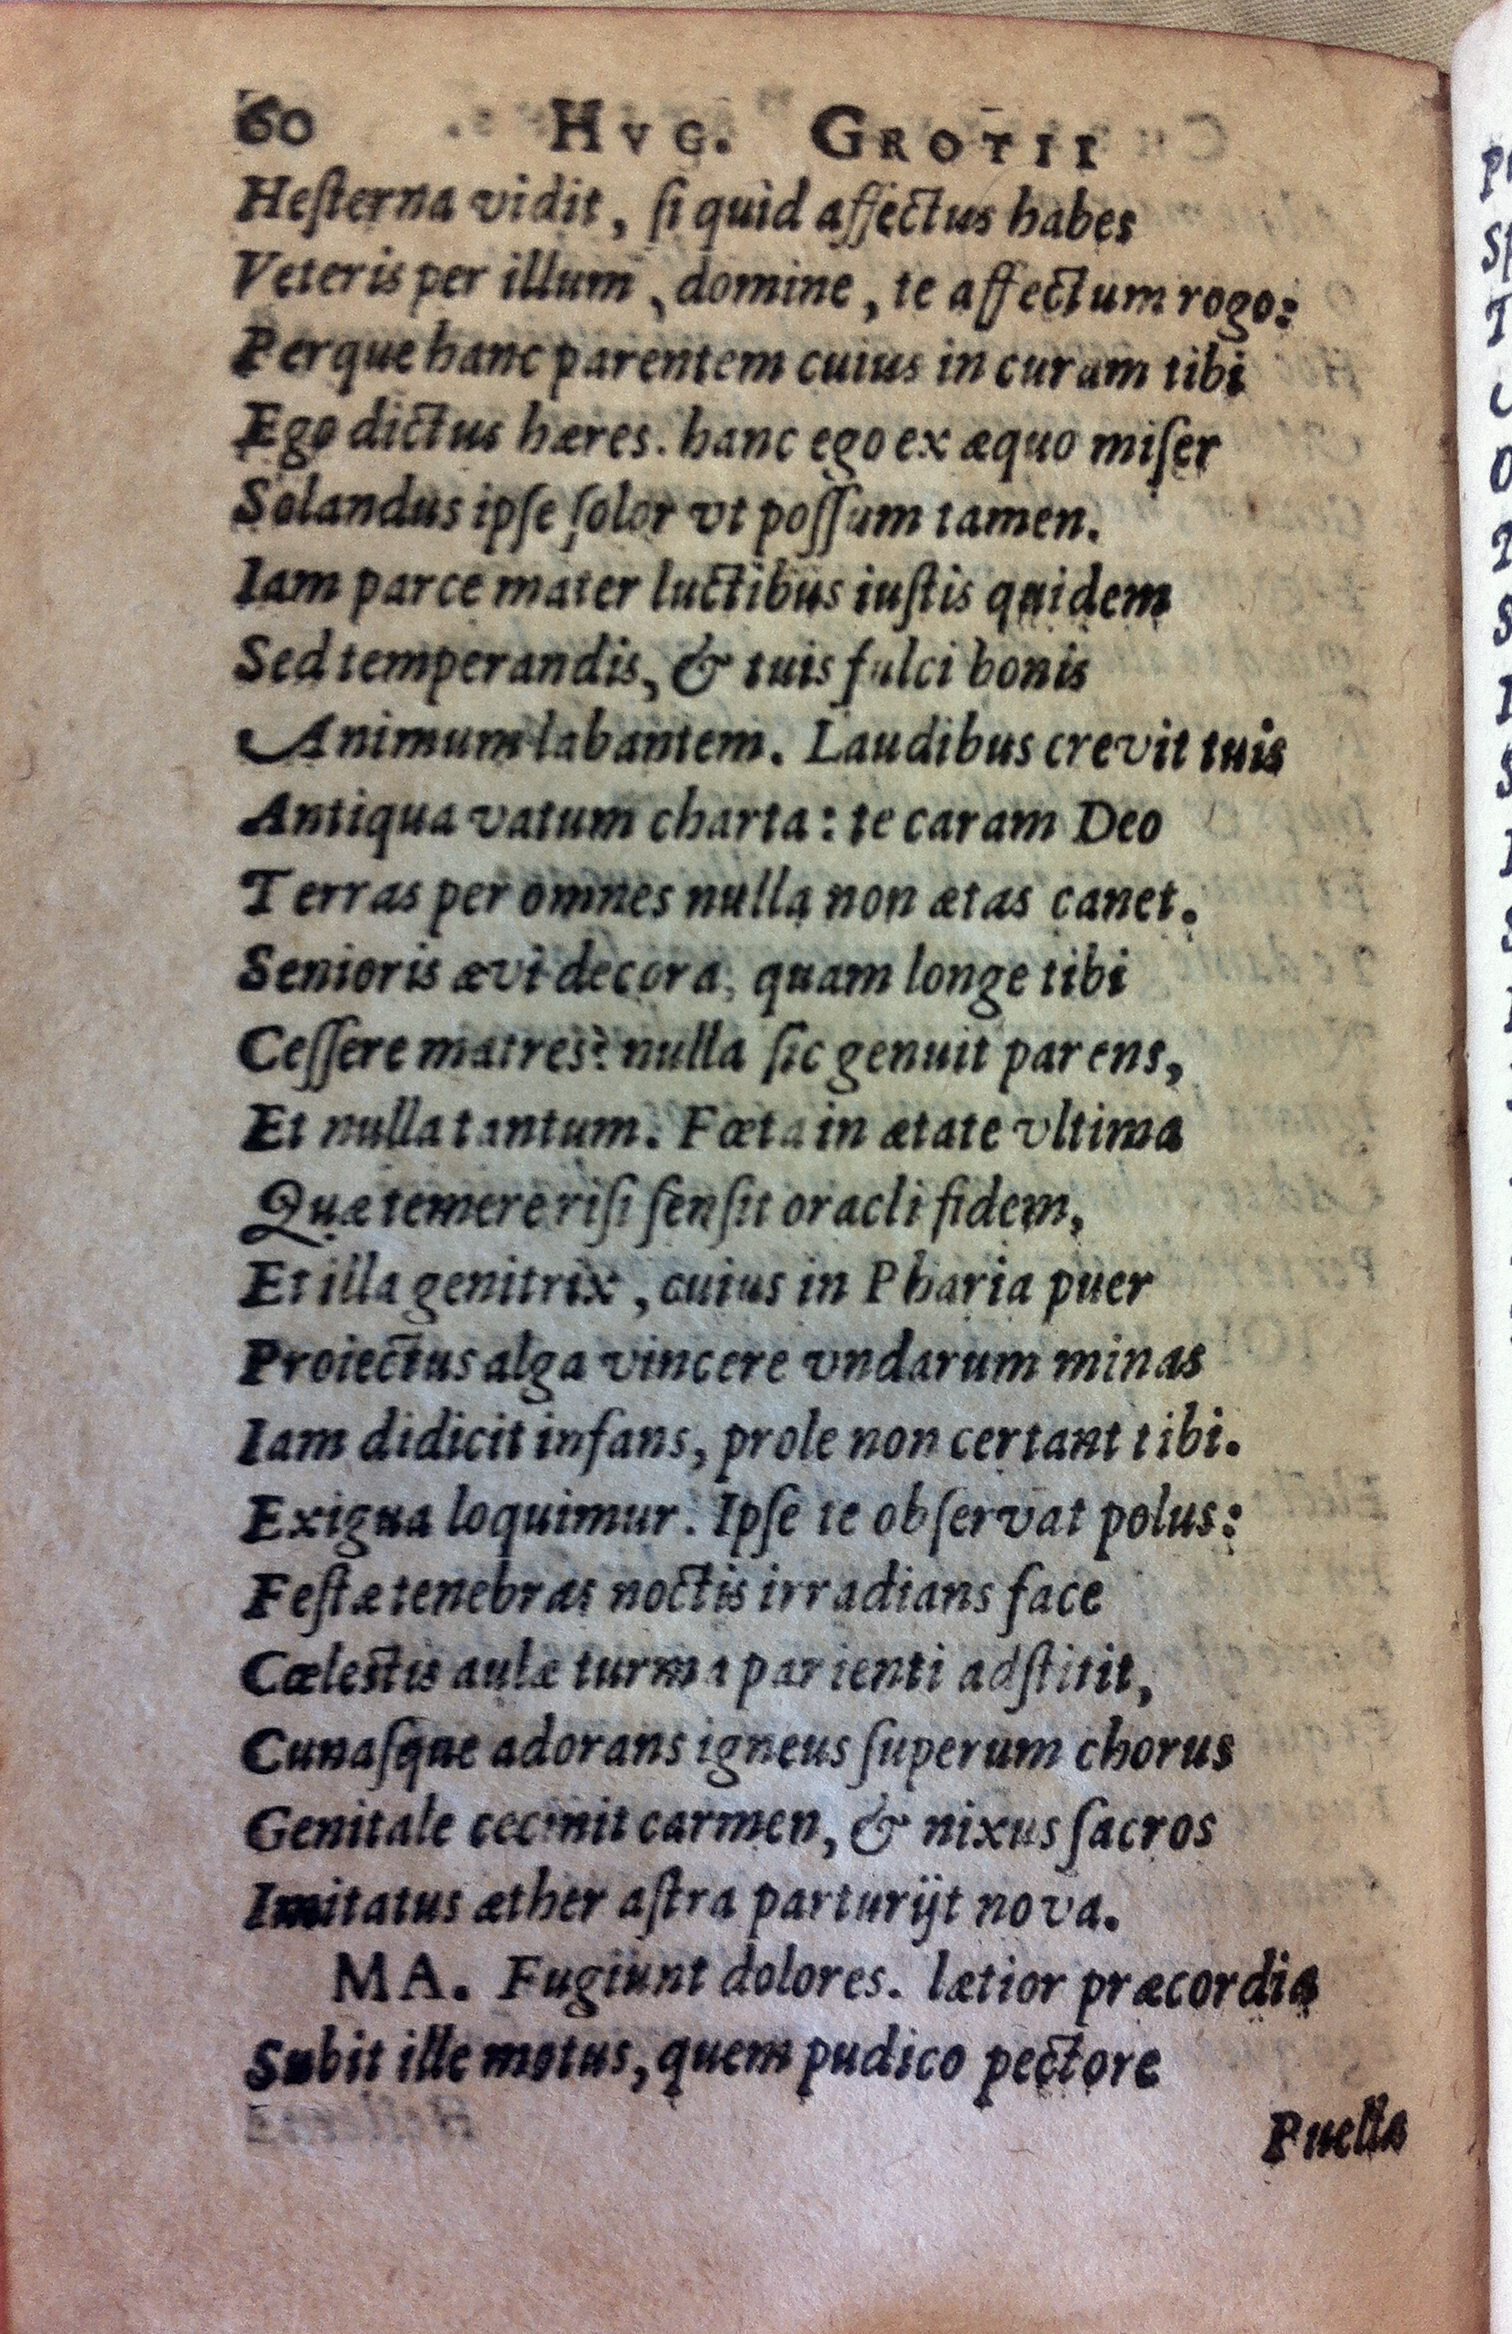 60 HVG. GROTII
Heſterna vidit, ſi quid affectus habes
Veteris per illum, domine, te affectum rogo:
Perque hanc parentem cuius in curam tibi
Ego dictus hæres. hanc ego ex æquo miſer
Solandus ipſe ſolor vt poſſum tamen.
Iam parce mater luctibus iuſtis quidem
Sed temperandis, & tuis fulci bonis
Animum labantem. Laudibus crevit tuis
Antiqua vatum charta: te caram Deo
Terras per omnes nulla non ætas canet.
Senioris ævi decora, quam longe tibi
Ceſſere matres? nulla ſic genuit parens,
Et nulla tantum. Fœta in ætate vltima
Quæ temere riſi ſenſit oracli fidem,
Et illa genitrix, cuius in Pharia puer
Proiectus alga vincere vndarum minas
Iam didicit infans, prole non certant tibi.
Exigua loquimur. Ipſe te obſervat polus:
Feſtæ tenebras noctis irradians face
Cœlestis aulæ turma parienti adſtitit,
Cunaſque adorans igneus ſuperum chorus
Genitale cecinit carmen, & nixus ſacros
Imitatus æther aſtra parturijt nova.
MA. Fugiunt dolores. lætior præcordia
Subit ille motus, quem pudico pectore
Puella